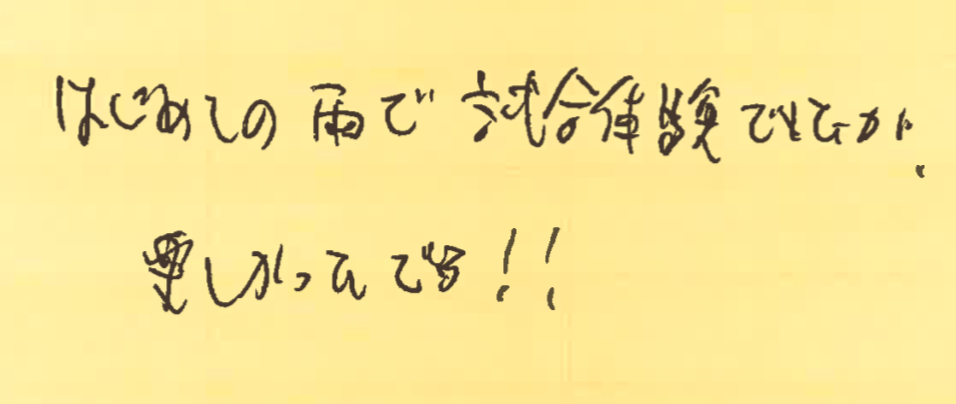 はじめての雨で試合体験でしたが、
楽しかったです!!